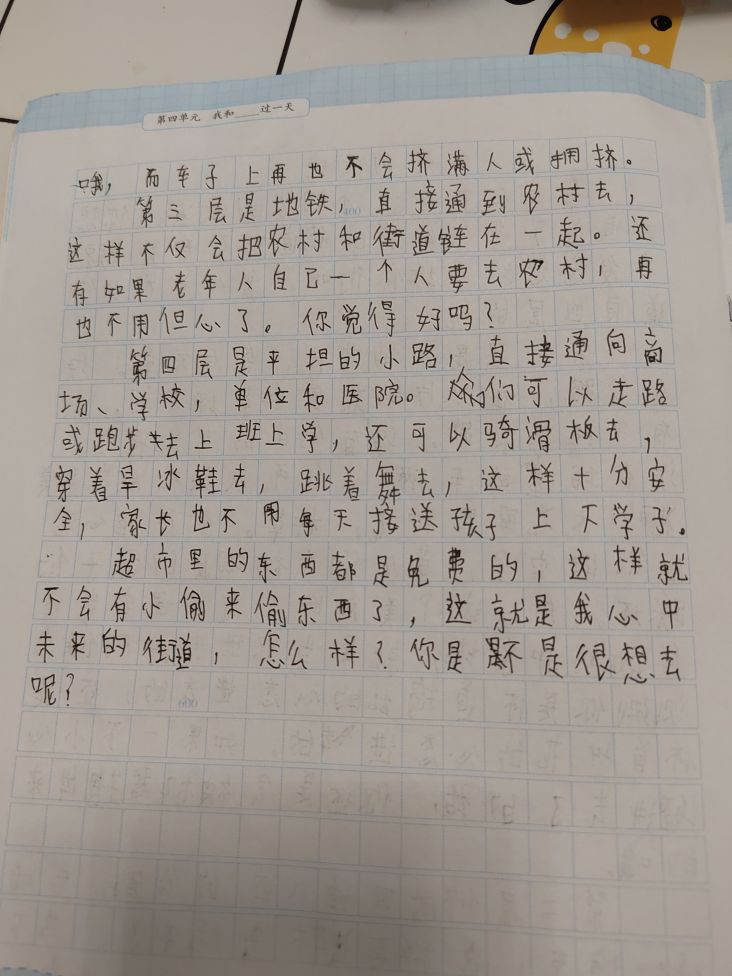 第四单元 我和____过一天
哦，而车子上再也不会挤满人或拥挤。
第三层是地铁，直接通到农村去，
这样不仅会把农村和街道链在一起。还
有如果老年人自己一个人要去农村，再
也不用但心了。你觉得好吗？
第四层是平担的小路，直接通向商
场、学校，单位和医院。人们可以走路
或跑步去上班上学，还可以骑滑板去，
穿着旱冰鞋去，跳着舞去，这样十分安
全，家长也不用每天接送孩子上下学了。
超市里的东西都是免费的，这样就
不会有小偷来偷东西了，这就是我心中
未来的街道，怎么样？你是不是很想去
呢？
600